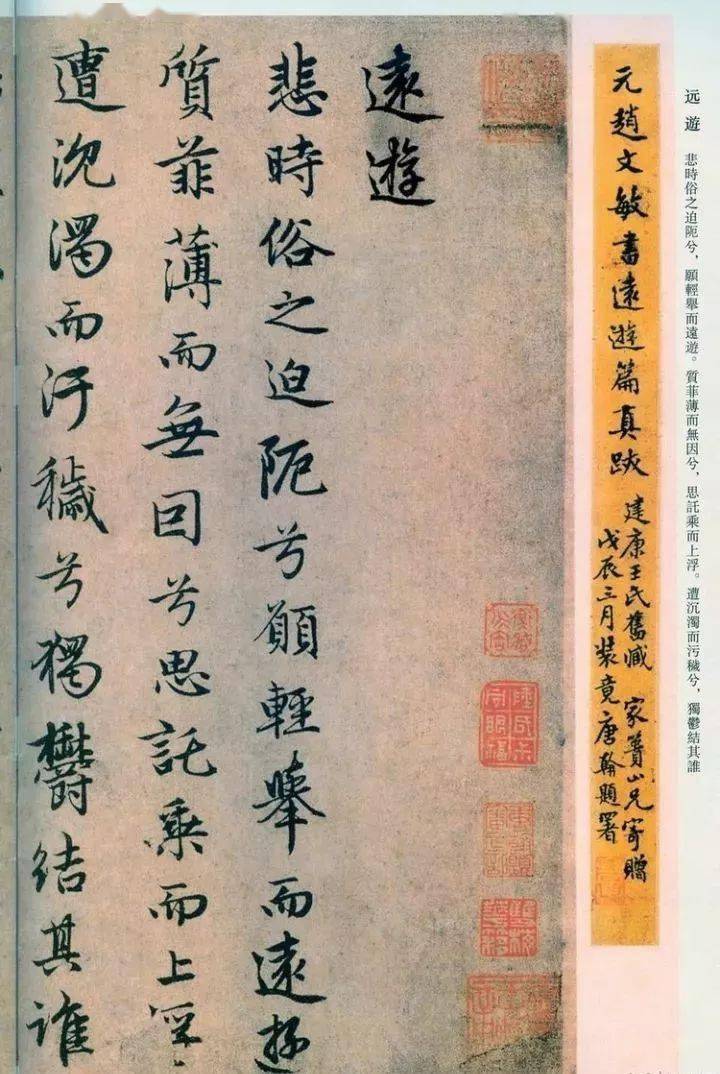 远遊 悲時俗之迫阨兮，願輕舉而遠遊。質菲薄而無因兮，思託乘而上浮。遭沉濁而污穢兮，獨鬱結其誰
元趙文敏書遠遊篇真跡
建康王氏舊藏 家蕢山兄寄贈
戊辰三月裝竟唐翰題署
遠遊
悲時俗之迫阨兮願輕舉而遠遊
質菲薄而無因兮思託乘而上浮
遭沈濁而汙穢兮獨鬱結其誰